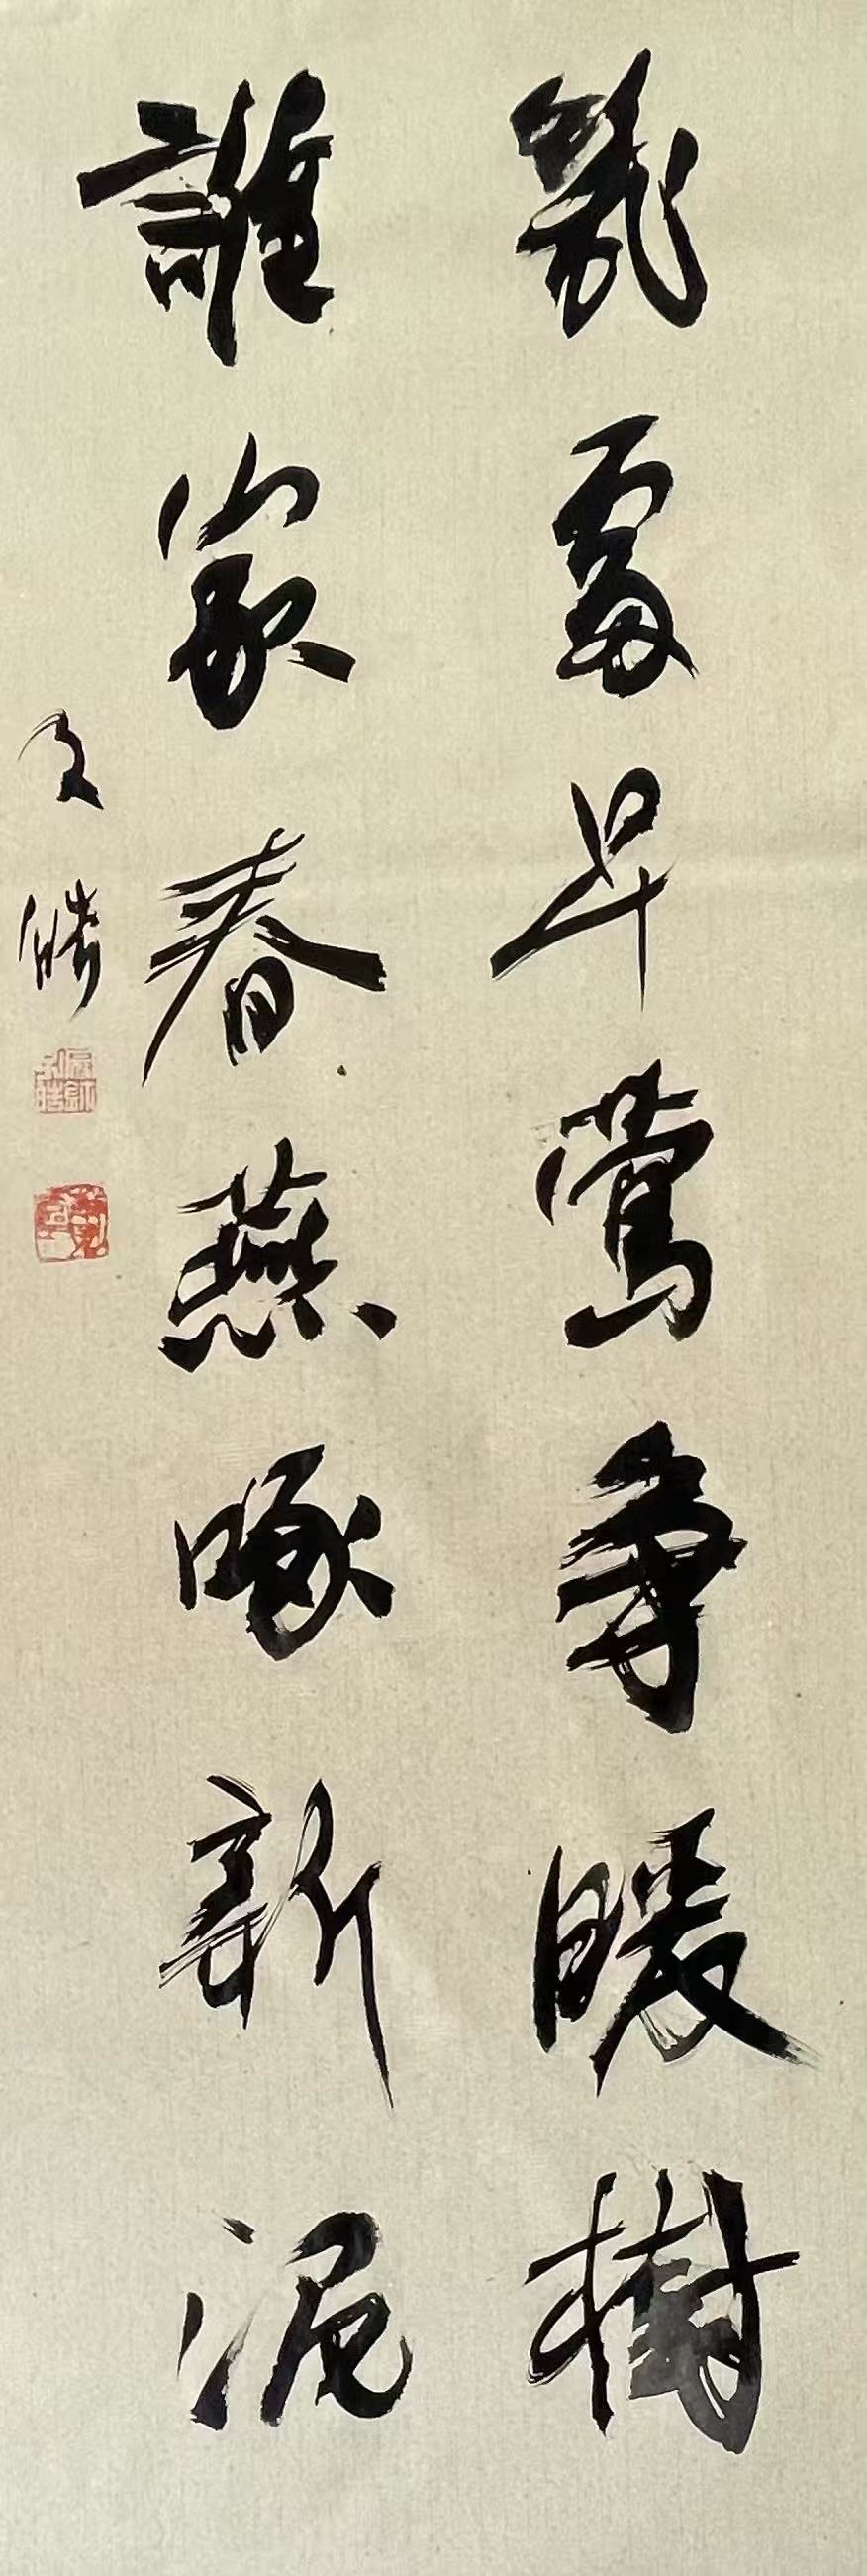 幾處早鶯争暖樹
誰家春燕啄新泥
文皓